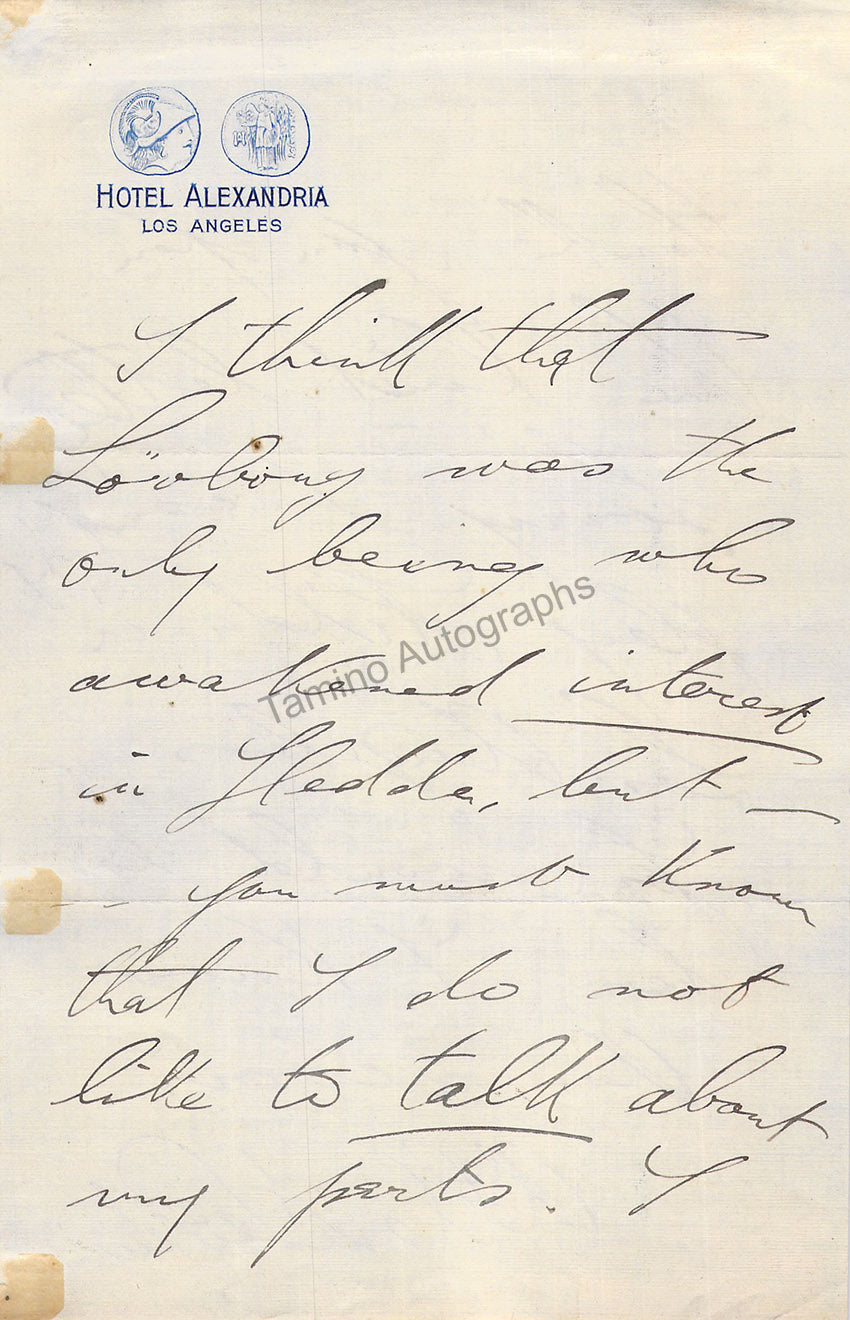 HOTEL ALEXANDRIA
LOS ANGELES
I think that
Lövborg was the
only being who
awakened interest
in Hedda, but —
-- you must know
that I do not
like to talk about
my parts. I
Tamino Autographs